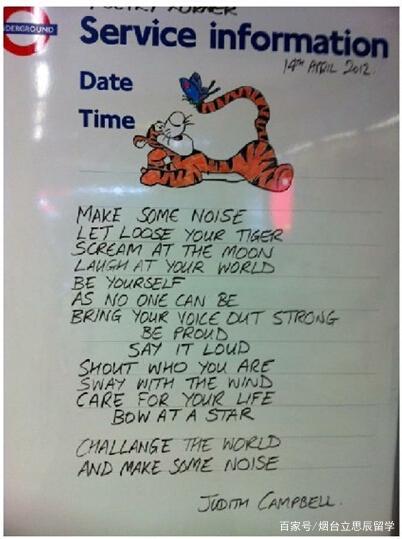 POETRY CORNER
UNDERGROUND
Service information
14TH APRIL 2012.
Date
Time
MAKE SOME NOISE
LET LOOSE YOUR TIGER
SCREAM AT THE MOON
LAUGH AT YOUR WORLD
BE YOURSELF
AS NO ONE CAN BE
BRING YOUR VOICE OUT STRONG
BE PROUD
SAY IT LOUD
SHOUT WHO YOU ARE
SWAY WITH THE WIND
CARE FOR YOUR LIFE
BOW AT A STAR
CHALLANGE THE WORLD
AND MAKE SOME NOISE
JUDITH CAMPBELL.
百家号/烟台立思辰留学